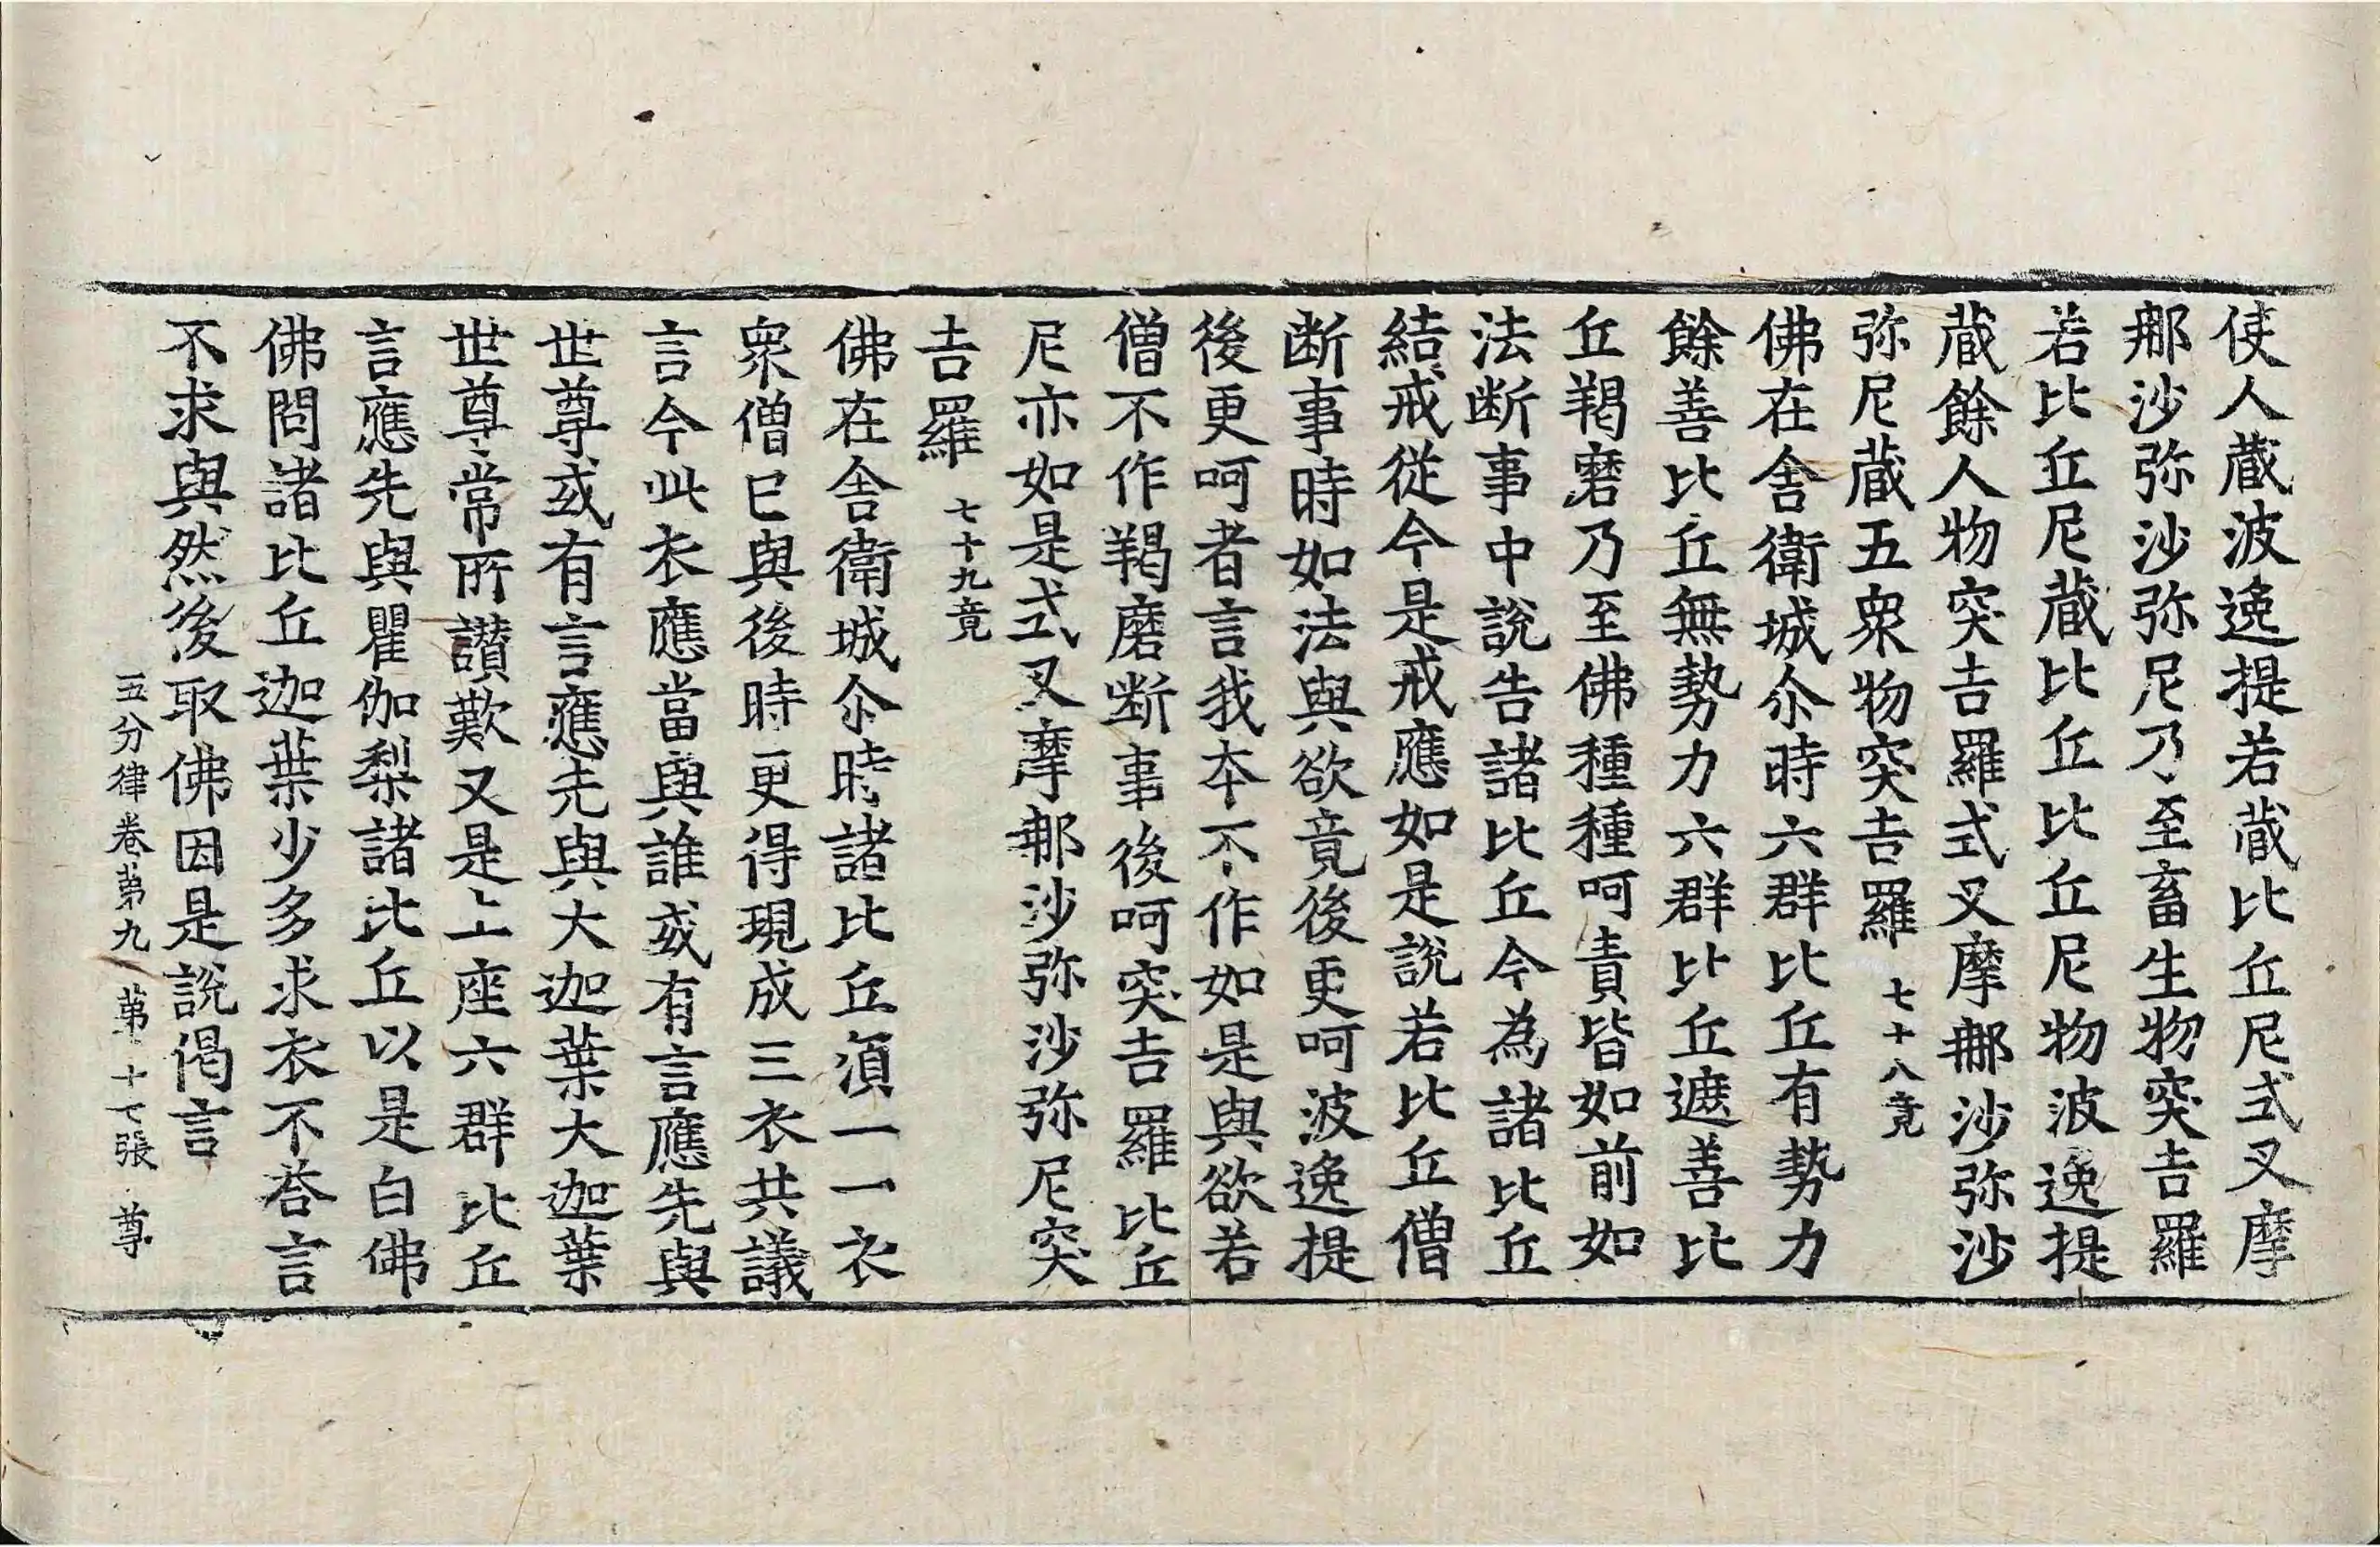 使人蔵波逸提若蔵比丘尼式叉摩
那沙弥沙弥尼乃至畜生物突吉羅
若比丘尼蔵比丘比丘尼物波逸提
蔵餘人物突吉羅式叉摩那沙弥沙
弥尼蔵五衆物突吉羅 七十八竟
佛在舎衛城尒時六群比丘有勢力
餘善比丘無勢力六群比丘遮善比
丘羯磨乃至佛種種呵責皆如前如
法断事中說告諸比丘今為諸比丘
結戒從今是戒應如是說若比丘僧
断事時如法與欲竟後更呵波逸提
後更呵者言我本不作如是與欲若
僧不作羯磨断事後呵突吉羅比丘
尼亦如是式叉摩那沙弥沙弥尼突
吉羅 七十九竟
佛在舎衛城尒時諸比丘須一一衣
衆僧已與後時更得現成三衣共議
言今此衣應當與誰或有言應先與
世尊或有言應先與大迦葉大迦葉
世尊常所讃歎又是上座六群比丘
言應先與瞿伽梨諸比丘以是白佛
佛問諸比丘迦葉少多求衣不荅言
不求與然後取佛因是說偈言
五分律卷苐九 苐十七張 尊